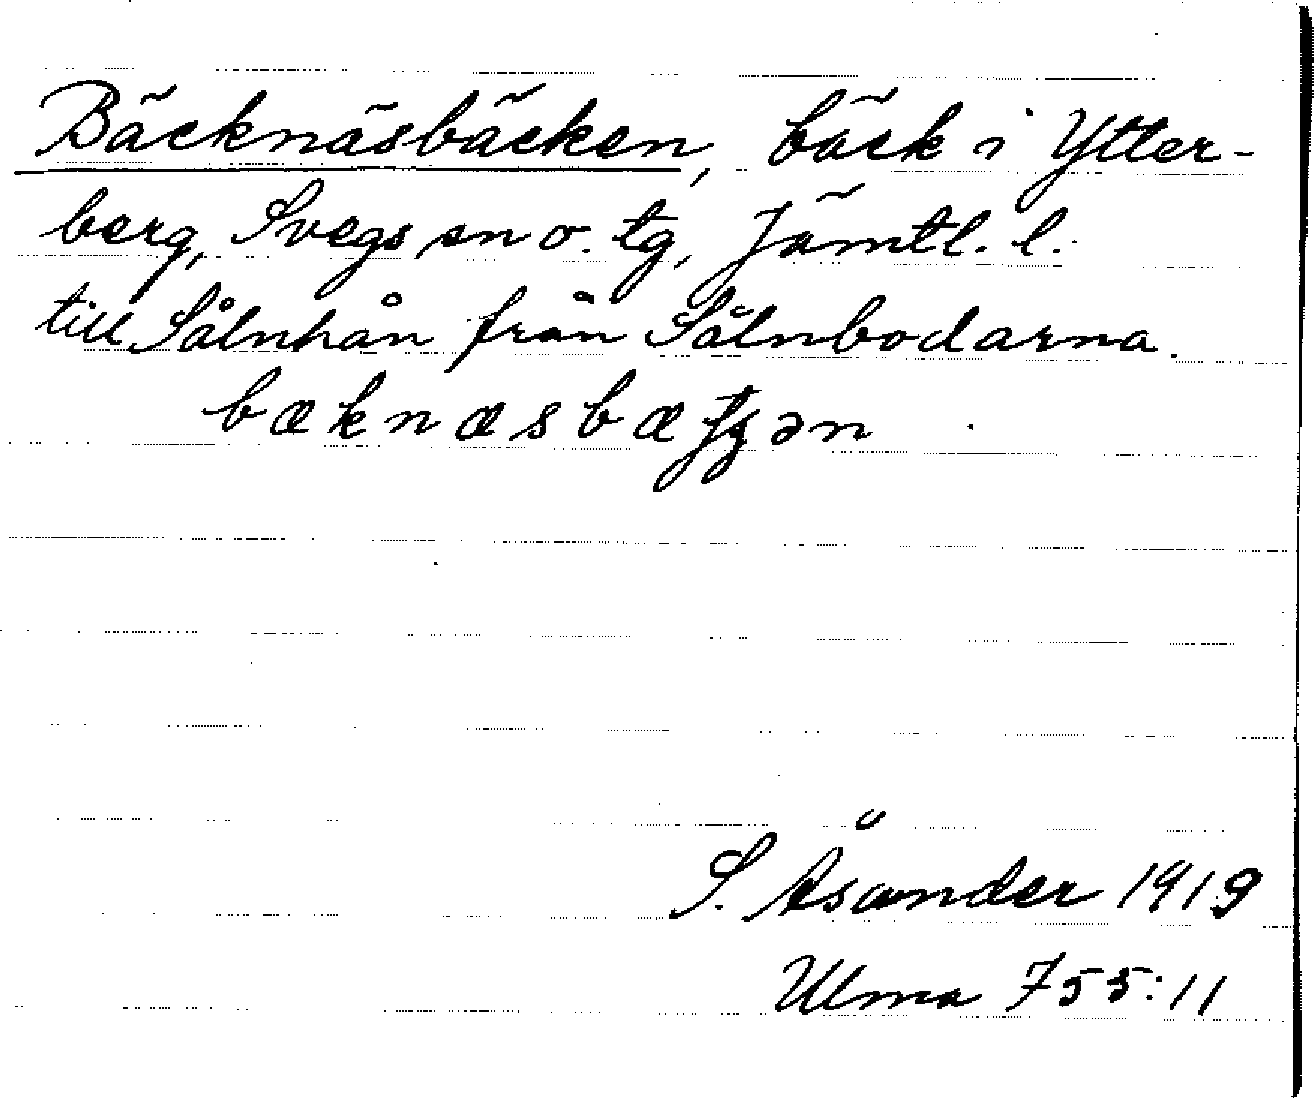 Bäcknäsbäcken, bäck i Ytter-
berg, Svegs sn o. tg, Jämtl. l.
till Sålnhån från Sålnbodarna.
bæknæsbætʂən
S. Åsander 1919
Ulma 755:11